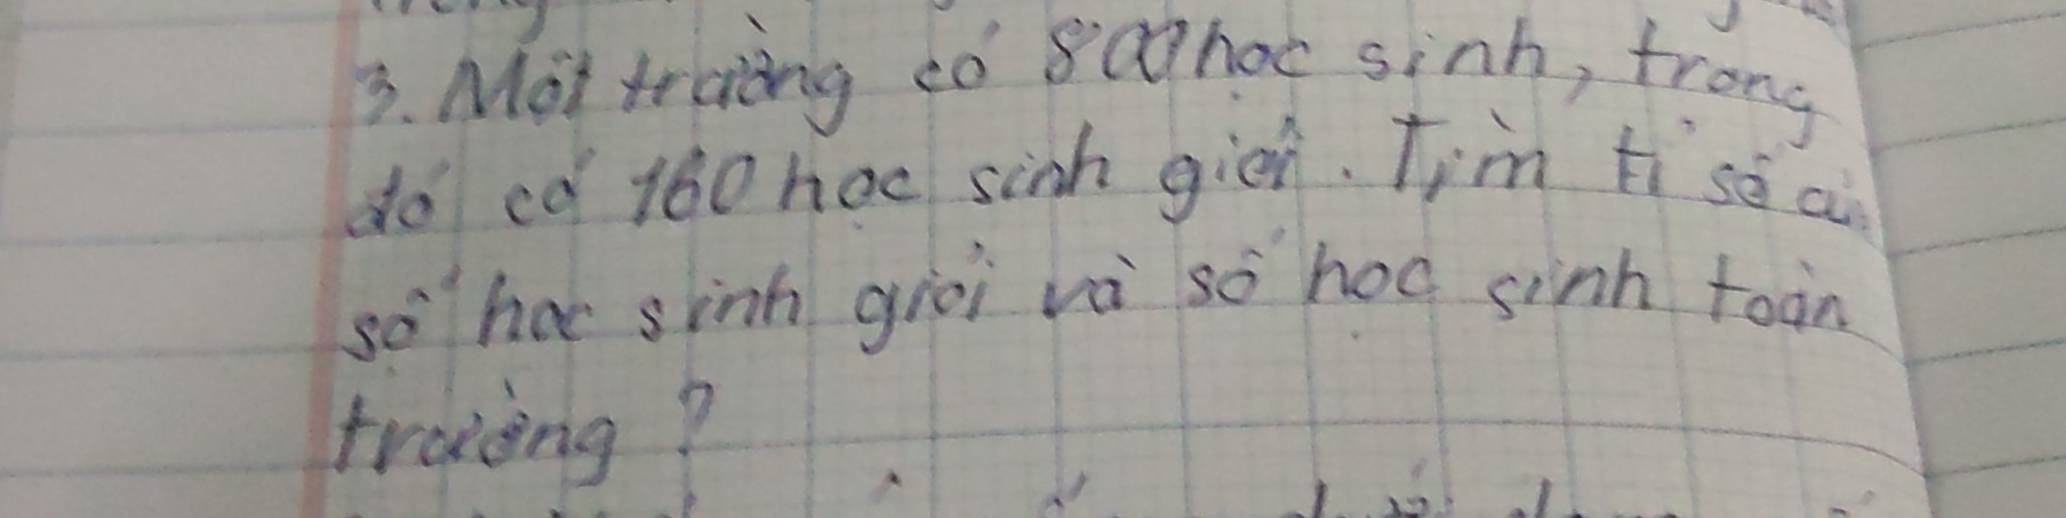 3. Một trường có 800 học sinh, trong
đó có 160 học sinh giỏi. Tìm tỉ số củ
số học sinh giỏi và số học sinh toàn
trường?